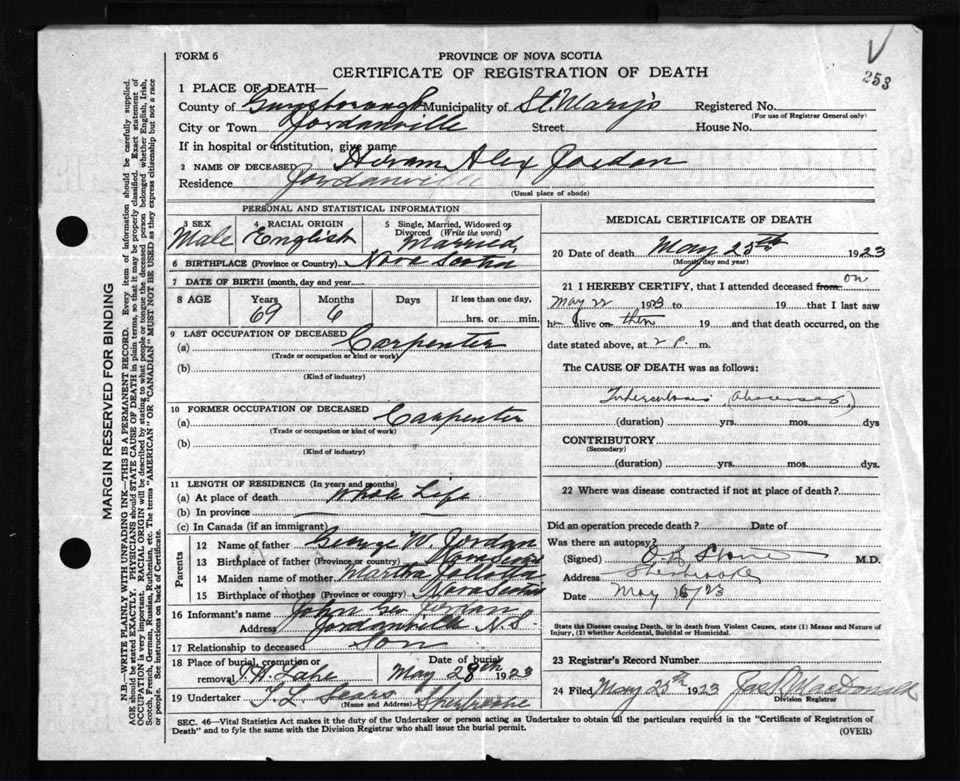 FORM 6
PROVINCE OF NOVA SCOTIA
CERTIFICATE OF REGISTRATION OF DEATH
253
1 PLACE OF DEATH—
County of Guysborough Municipality of St. Mary's Registered No.
(For use of Registrar General only)
City or Town Jordanville Street House No.
If in hospital or institution, give name
2 NAME OF DECEASED Hiram Alex Jordan
Residence Jordanville
(Usual place of abode)
PERSONAL AND STATISTICAL INFORMATION
3 SEX Male
4 RACIAL ORIGIN English
5 Single, Married, Widowed or Divorced (Write the word) Married
6 BIRTHPLACE (Province or Country) Nova Scotia
7 DATE OF BIRTH (month, day and year)
8 AGE Years Months Days If less than one day,
69 6 hrs. or min.
9 LAST OCCUPATION OF DECEASED
(a) Carpenter
(Trade or occupation or kind or work)
(b)
(Kind of industry)
10 FORMER OCCUPATION OF DECEASED
(a) Carpenter
(Trade or occupation or kind of work)
(b)
(Kind of industry)
11 LENGTH OF RESIDENCE (In years and months)
(a) At place of death Whole Life
(b) In province
(c) In Canada (if an immigrant)
Parents
12 Name of father George W. Jordan
13 Birthplace of father (Province or country) Nova Scotia
14 Maiden name of mother Martha
15 Birthplace of mother (Province or country) Nova Scotia
16 Informant's name John Geo Jordan
Address Jordanville N.S.
17 Relationship to deceased Son
18 Place of burial, cremation or removal Lake
Date of burial May 28th 1923
19 Undertaker T. L. Sears Sherbrooke
(Name and Address)
MEDICAL CERTIFICATE OF DEATH
20 Date of death May 25th 1923
(Month day and year)
21 I HEREBY CERTIFY, that I attended deceased from on
May 22 1923 to 19 that I last saw
him alive on then 19 and that death occurred, on the
date stated above, at 2 P. m.
The CAUSE OF DEATH was as follows:
Tuberculosis (Abscesses)
(duration) yrs. mos. dys
CONTRIBUTORY
(Secondary)
(duration) yrs. mos. dys.
22 Where was disease contracted if not at place of death?
Did an operation precede death? Date of
Was there an autopsy?
(Signed) M.D.
Address Sherbrooke
Date May /23
State the Disease causing Death, or in death from Violent Causes, state (1) Means and Nature of Injury, (2) whether Accidental, Suicidal or Homicidal.
23 Registrar's Record Number
24 Filed May 25th 1923 Jas. R. MacDonald
Division Registrar
SEC. 46—Vital Statistics Act makes it the duty of the Undertaker or person acting as Undertaker to obtain all the particulars required in the "Certificate of Registration of
Death" and to fyle the same with the Division Registrar who shall issue the burial permit.
(OVER)
MARGIN RESERVED FOR BINDING
N.B.—WRITE PLAINLY WITH UNFADING INK—THIS IS A PERMANENT RECORD. Every item of information should be carefully supplied.
AGE should be stated EXACTLY. PHYSICIANS should STATE CAUSE OF DEATH in plain terms, so that it may be properly classified. Exact statement of
OCCUPATION is very important. RACIAL ORIGIN will be described by stating to what people or tongue the deceased person belonged whether English, Irish,
Scotch, French, German, Russian, Ruthenian, etc. The terms "AMERICAN" OR "CANADIAN" MUST NOT BE USED as they express citizenship but not a race
or people. See instructions on back of Certificate.